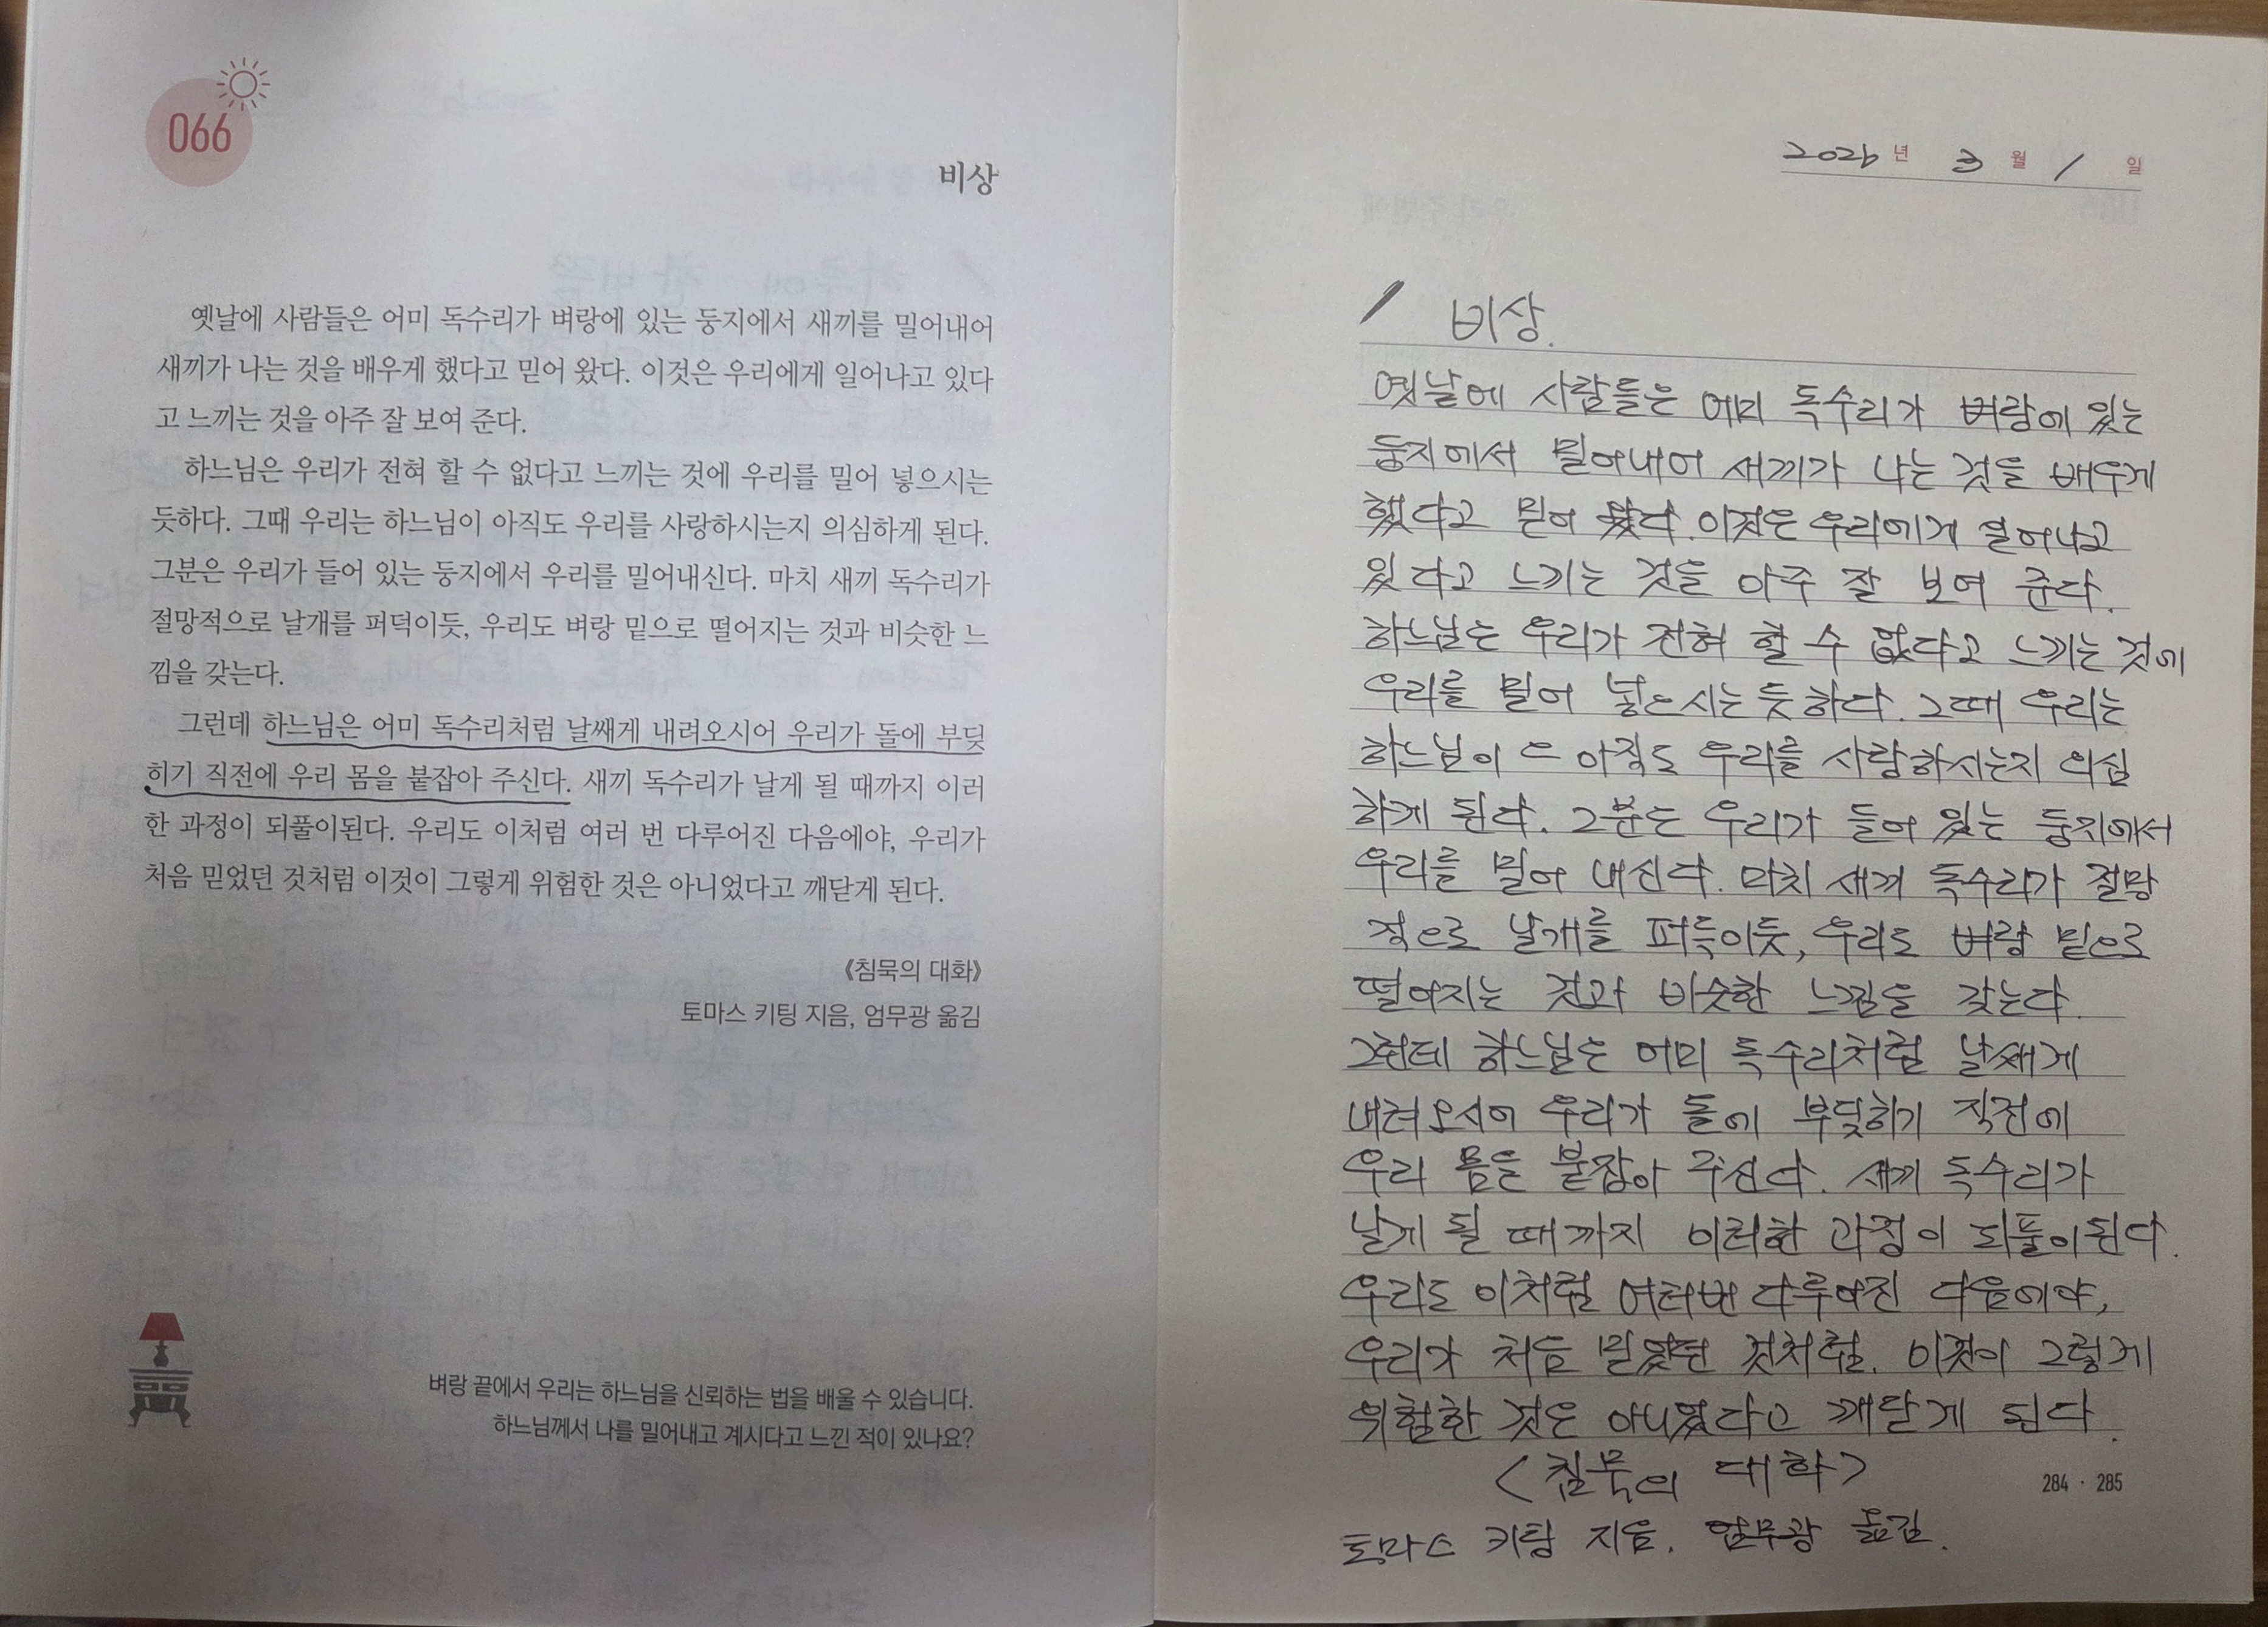 066
비상
옛날에 사람들은 어미 독수리가 벼랑에 있는 둥지에서 새끼를 밀어내어
새끼가 나는 것을 배우게 했다고 믿어 왔다. 이것은 우리에게 일어나고 있다
고 느끼는 것을 아주 잘 보여 준다.
하느님은 우리가 전혀 할 수 없다고 느끼는 것에 우리를 밀어 넣으시는
듯하다. 그때 우리는 하느님이 아직도 우리를 사랑하시는지 의심하게 된다.
그분은 우리가 들어 있는 둥지에서 우리를 밀어내신다. 마치 새끼 독수리가
절망적으로 날개를 퍼덕이듯, 우리도 벼랑 밑으로 떨어지는 것과 비슷한 느
낌을 갖는다.
그런데 하느님은 어미 독수리처럼 날쌔게 내려오시어 우리가 돌에 부딪
히기 직전에 우리 몸을 붙잡아 주신다. 새끼 독수리가 날게 될 때까지 이러
한 과정이 되풀이된다. 우리도 이처럼 여러 번 다루어진 다음에야, 우리가
처음 믿었던 것처럼 이것이 그렇게 위험한 것은 아니었다고 깨닫게 된다.
《침묵의 대화》
토마스 키팅 지음, 엄무광 옮김
벼랑 끝에서 우리는 하느님을 신뢰하는 법을 배울 수 있습니다.
하느님께서 나를 밀어내고 계시다고 느낀 적이 있나요?
2026년 3월 1일
비상.
옛날에 사람들은 어미 독수리가 벼랑에 있는
둥지에서 밀어내어 새끼가 나는 것을 배우게
했다고 믿어 왔다. 이것은 우리에게 일어나고
있다고 느끼는 것을 아주 잘 보여 준다.
하느님은 우리가 전혀 할 수 없다고 느끼는 것에
우리를 밀어 넣으시는 듯하다. 그때 우리는
하느님이 으 아직도 우리를 사랑하시는지 의심
하게 된다. 그분은 우리가 들어 있는 둥지에서
우리를 밀어 내신다. 마치 새끼 독수리가 절망
적으로 날개를 퍼득이듯, 우리도 벼랑 밑으로
떨어지는 것과 비슷한 느낌을 갖는다.
그런데 하느님은 어미 독수리처럼 날쌔게
내려오시어 우리가 돌에 부딪히기 직전에
우리 몸을 붙잡아 주신다. 새끼 독수리가
날게 될 때까지 이러한 과정이 되풀이된다.
우리도 이처럼 여러번 다루어진 다음에야,
우리가 처음 믿었던 것처럼. 이것이 그렇게
위험한 것은 아니었다고 깨닫게 된다.
<침묵의 대화>
토마스 키팅 지음. 엄무광 옮김.
284 · 285